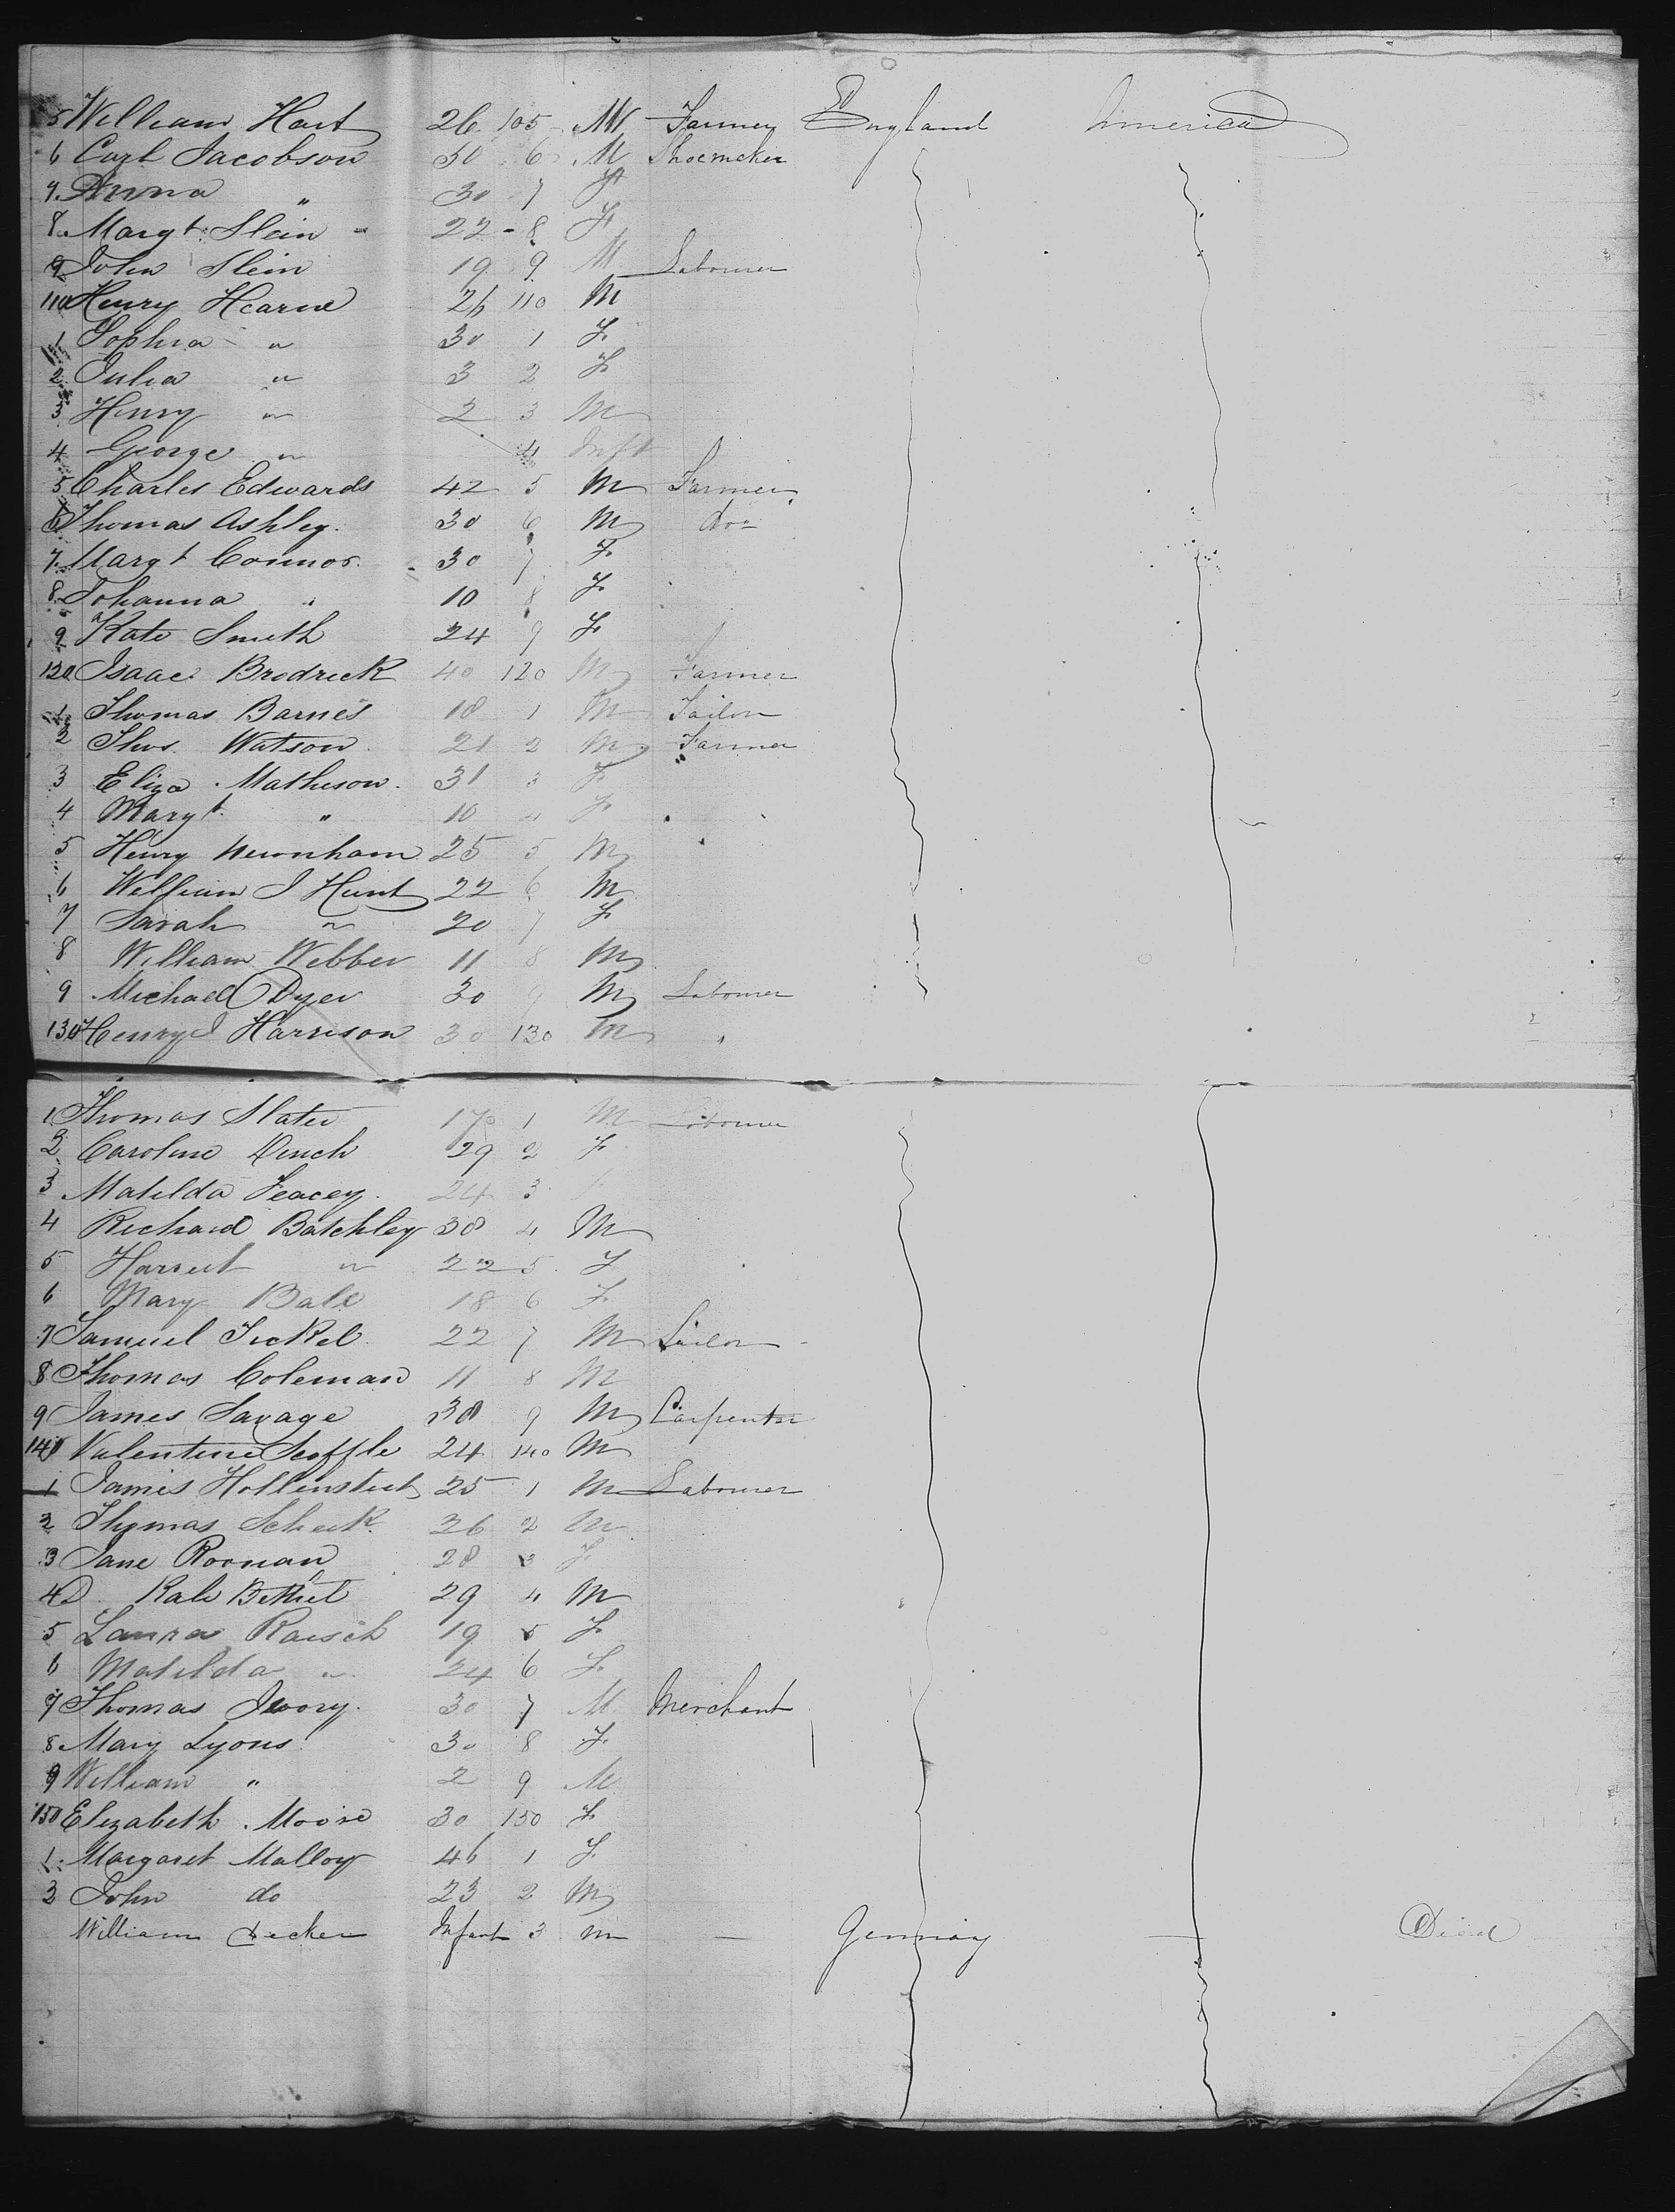 5 William Hart 26 105 M Farmer England America
6 Carl Jacobson 30 6 M Shoemaker
7 Anna " 30 7 F
8 Margt Stein 22 8 F
9 John Stein 19 9 M Labourer
110 Henry Hearne 26 110 M
1 Sophia " 30 1 F
2 Julia " 3 2 F
3 Henry " 2 3 M
4 George " 4 Inft
5 Charles Edwards 42 5 M Farmer
6 Thomas Ashley 30 6 M do
7 Margt Connor 30 7 F
8 Johanna " 10 8 F
9 Kate Smith 24 9 F
120 Isaac Brodrick 40 120 M Farmer
1 Thomas Barnes 18 1 M Tailor
2 Thos Watson 21 2 M Farmer
3 Eliza Matheson 31 3 F
4 Margt " 10 4 F
5 Henry Newnham 25 5 M
6 William J Hunt 22 6 M
7 Sarah " 20 7 F
8 William Webber 11 8 M
9 Michael Dyer 30 9 M Labourer
130 Henry J Harrison 30 130 M "
1 Thomas Slater 17 1 M Labourer
2 Caroline 29 2 F
3 Matilda 24 3
4 Richard Batchley 38 4 M
5 Harriet " 22 5 F
6 Mary Bale 18 6 F
7 Samuel 22 7 M
8 Thomas Coleman 11 8 M
9 James Savage 38 9 M Carpenter
140 Valentine Scoffle 24 140 M
1 James 25 1 M Labourer
2 Thomas 26 2 M
3 Jane 28 3 F
4 29 4 M
5 Laura Raisch 19 5 F
6 Matilda " 24 6 F
7 Thomas Ivory 30 7 M Merchant
8 Mary Lyons 30 8 F
9 William " 2 9 M
150 Elizabeth Moore 30 150 F
1 Margaret Malloy 46 1 F
2 John do 23 2 M
William Decker Infant 3 M — Germany — Died